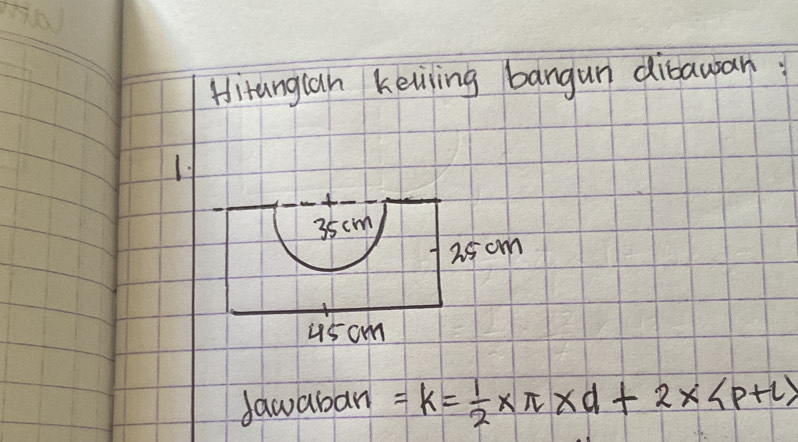 Hitunglah keliling bangun dibawah :
1.
35 cm
25 cm
45 cm
Jawaban = k = 1/2 x π x d + 2 x <p+l>